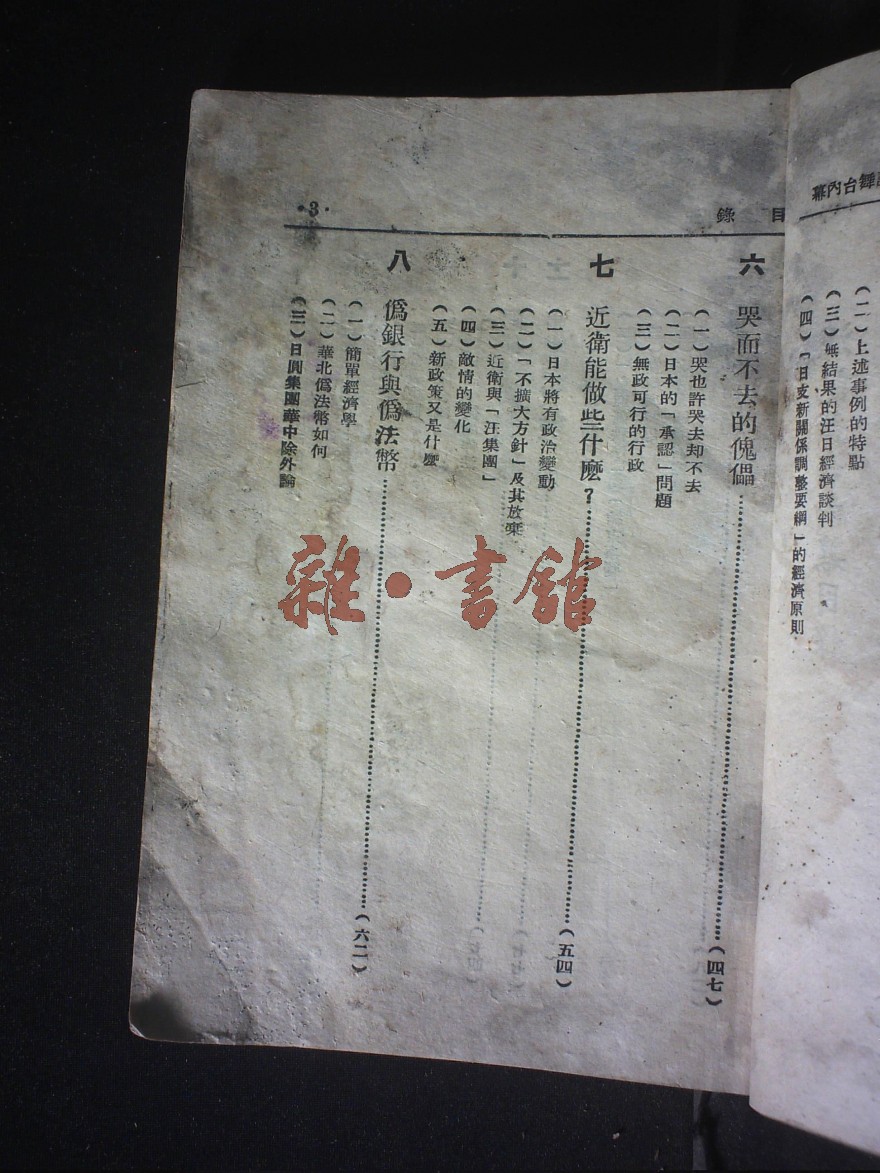 幕內台舞
（二）上述事例的特點
（三）無結果的汪日經濟談判
（四）「日支新關係調整要綱」的經濟原則
目錄
·3·
六 哭而不去的傀儡……（四七）
（一）哭也許哭去却不去
（二）日本的「承認」問題
（三）無政可行的行政
七 近衛能做些什麽？……（五四）
（一）日本將有政治變動
（二）「不擴大方針」及其放棄
（三）近衛與「汪集團」
（四）敵情的變化
（五）新政策又是什麽
八 僞銀行與僞法幣……（六二）
（一）簡單經濟學
（二）華北僞法幣如何
（三）日圓集團華中除外論
雜·書館